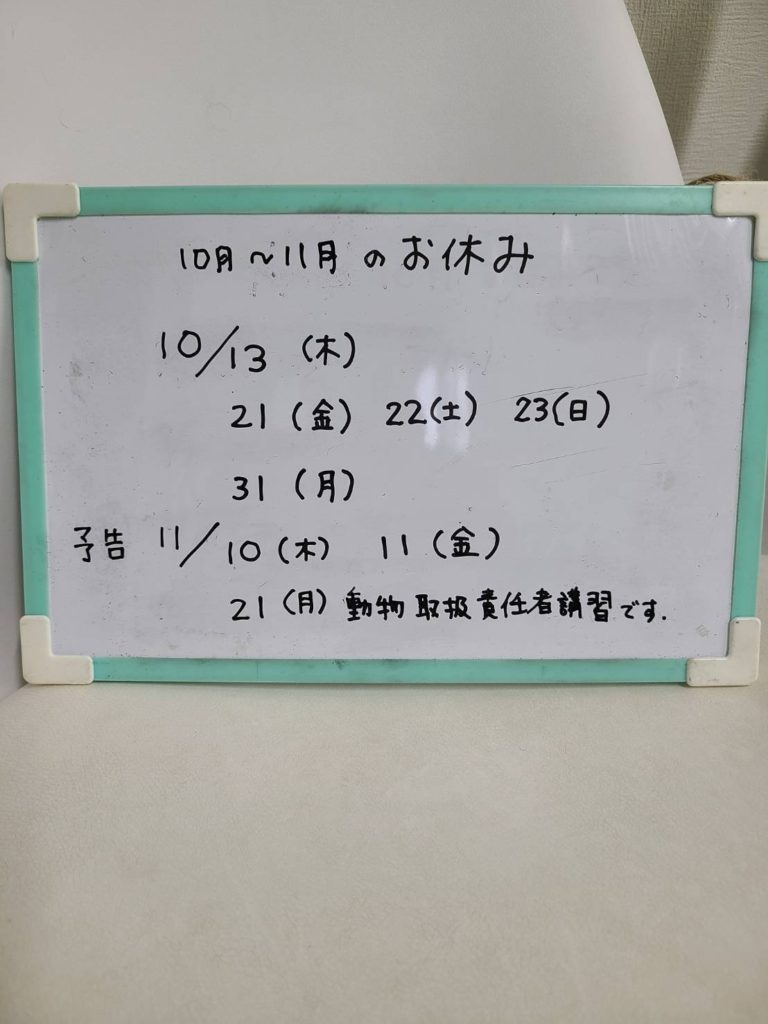 10月~11月 のお休み
10/13 (木)
21 (金) 22(土) 23(日)
31 (月)
予告 11/10(木) 11(金)
21(月) 動物取扱責任者講習です.